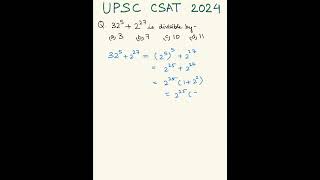 UPSC CSAT 2024
Q. 32⁵ + 2²⁷ is divisible by-
a) 3 b) 7 c) 10 d) 11
32⁵ + 2²⁷ = (2⁵)⁵ + 2²⁷
= 2²⁵ + 2²⁷
= 2²⁵ (1 + 2²)
= 2²⁵ (